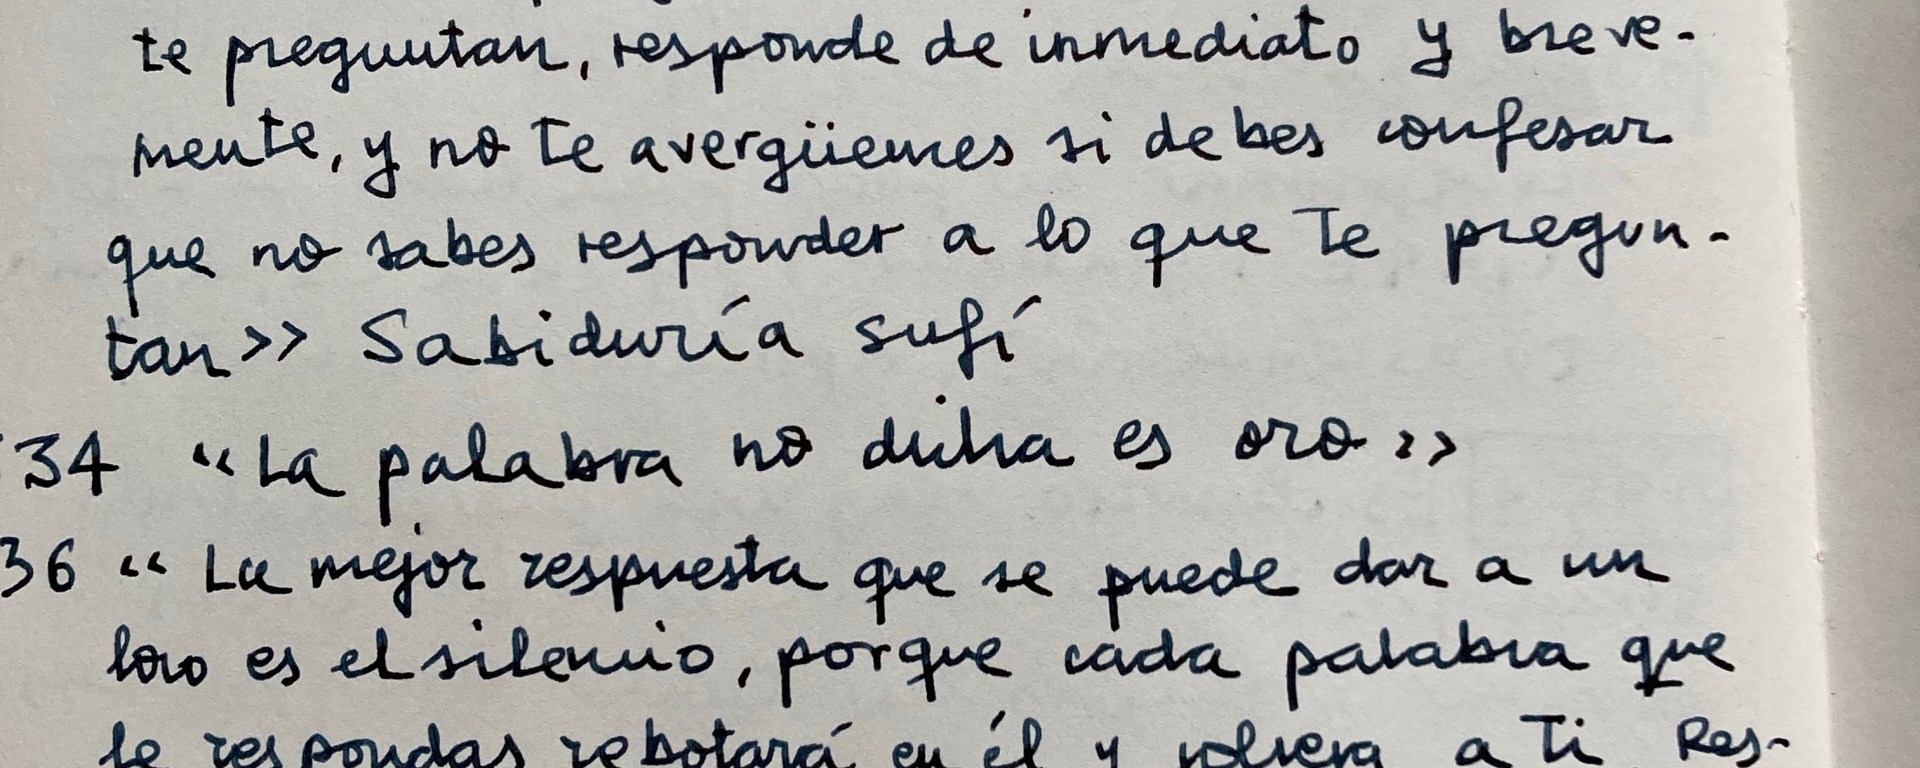 te preguntan, responde de inmediato y breve-
mente, y no te avergüences si debes confesar
que no sabes responder a lo que te pregun-
tan>> Sabiduría sufí
34 "La palabra no dicha es oro>>
36 "La mejor respuesta que se puede dar a un
loro es el silencio, porque cada palabra que
le respondas rebotará en él y volverá a ti Res-